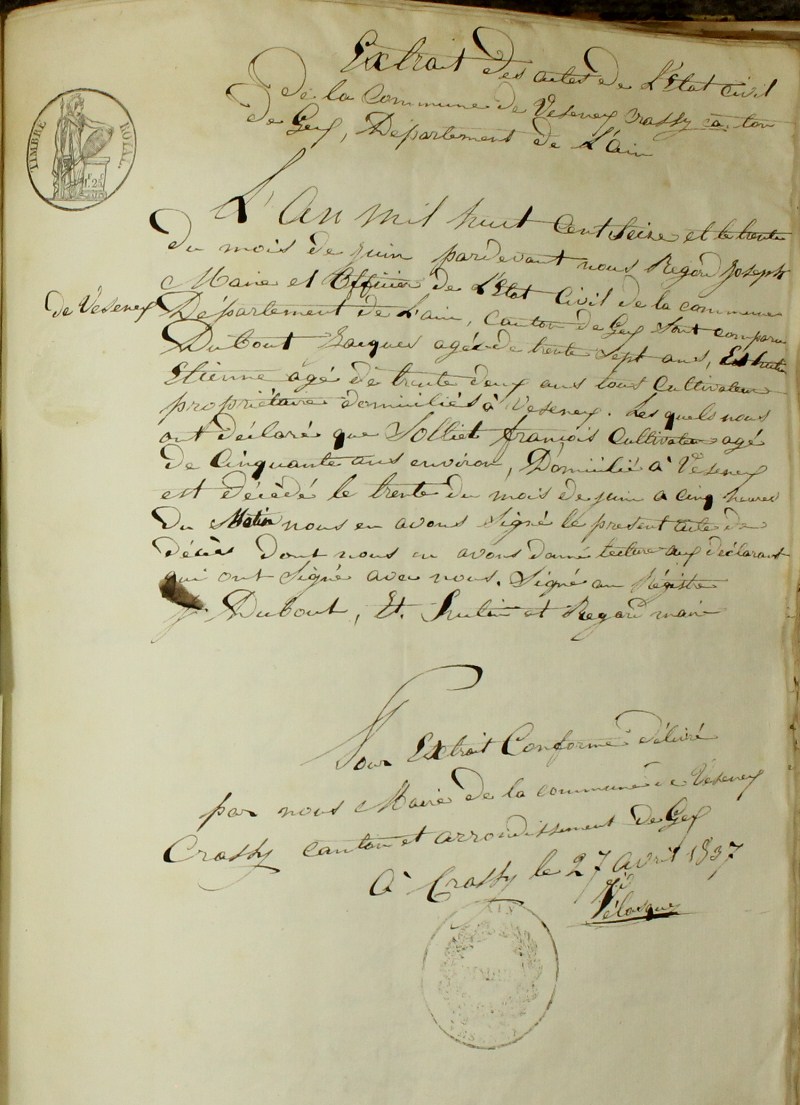 Extrait des actes de L'Etat Civil
de la Commune de Vesenex Crassy canton
de Gex, Département de L'ain
TIMBRE ROYAL
L'An mil huit Cent Seize et le trente
du mois de juin pardevant nous Regard Joseph
Maire et Officier de L'Etat Civil de la commune
de Vésenex
Département de L'ain, Canton de Gex Sont comparu
Dubout Jacques agé de trente Sept ans, Et
Etienne agé de trente deux ans tous Cultivateurs
propriétaire domiciliés à Vesenex. Lesquels nous
ont déclaré que Solliet françois Cultivateur agé
de Cinquante ans environ, Domicilié à Vésenex
est décédé le trente du mois de juin a cinq heures
du Matin nous en avons Signé le present acte de
décès dont nous en avons donné lecture aux déclarant
qui ont Signé avec nous. Signé au Régistre
J. Dubout, Et. et Regard maire
Pour Extrait Conforme délivré
par nous Maire de la commune de Vesenex
Crassy canton et arrondissement de Gex
A Crassy le 27 Avril 1837